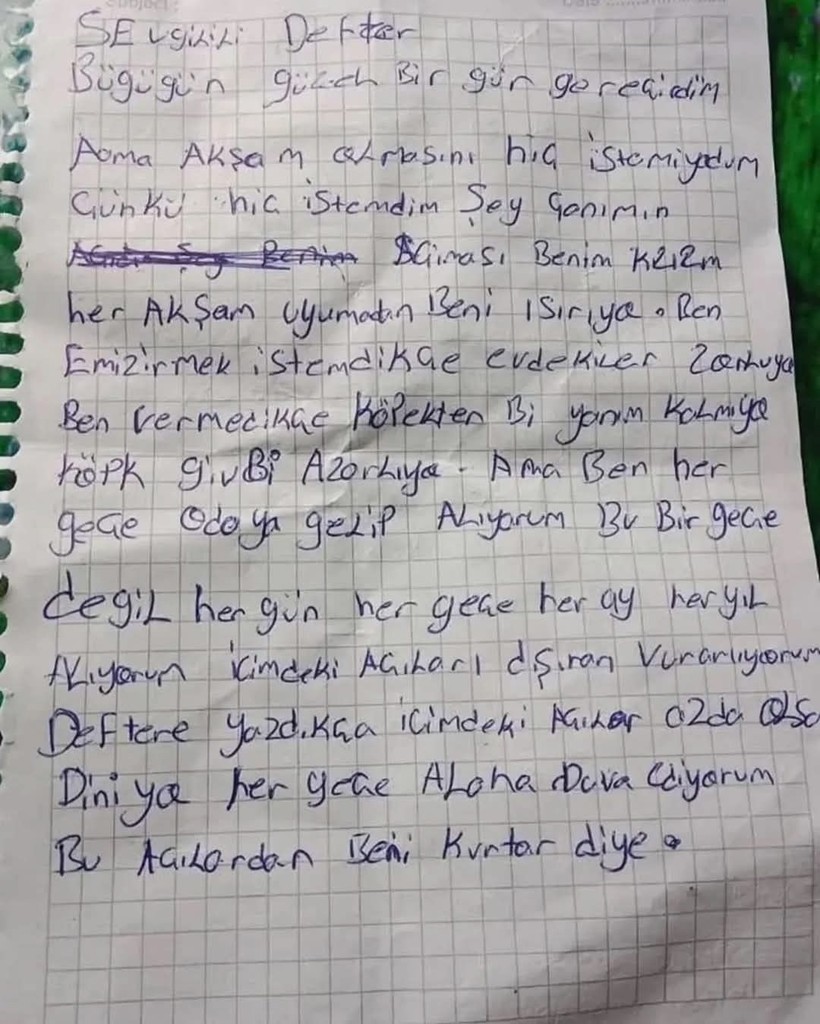 SEvgiLiLi Defter
Bügügün güzeh Bir gün gereçirdim
Aoma AKşam oLmasını hiç istemiyodum
Günkü hiç istemdim Şey Ganımın
Acıması Benim Kızım
her AKŞam uyumadan Beni ısırıya. Ben
Emizirmek istemdikçe evdekiler Zorluya
Ben vermedikçe Köpekten Bi yanım Kalmıya
Köpk givBi Azorlıya. Ama Ben her
geçe Odaya geLip ALıyorum Bu Bir geçe
degiL her gün her geçe her ay her yıL
ALıyorum içimdeki AçıLarı dışıran Vurarlıyorum
Deftere yazdıkça içimdeki AçıLar azda Olsa
Diniya her geçe ALaha Duva Ediyorum
Bu AçıLardan Beni Kurtar diye.